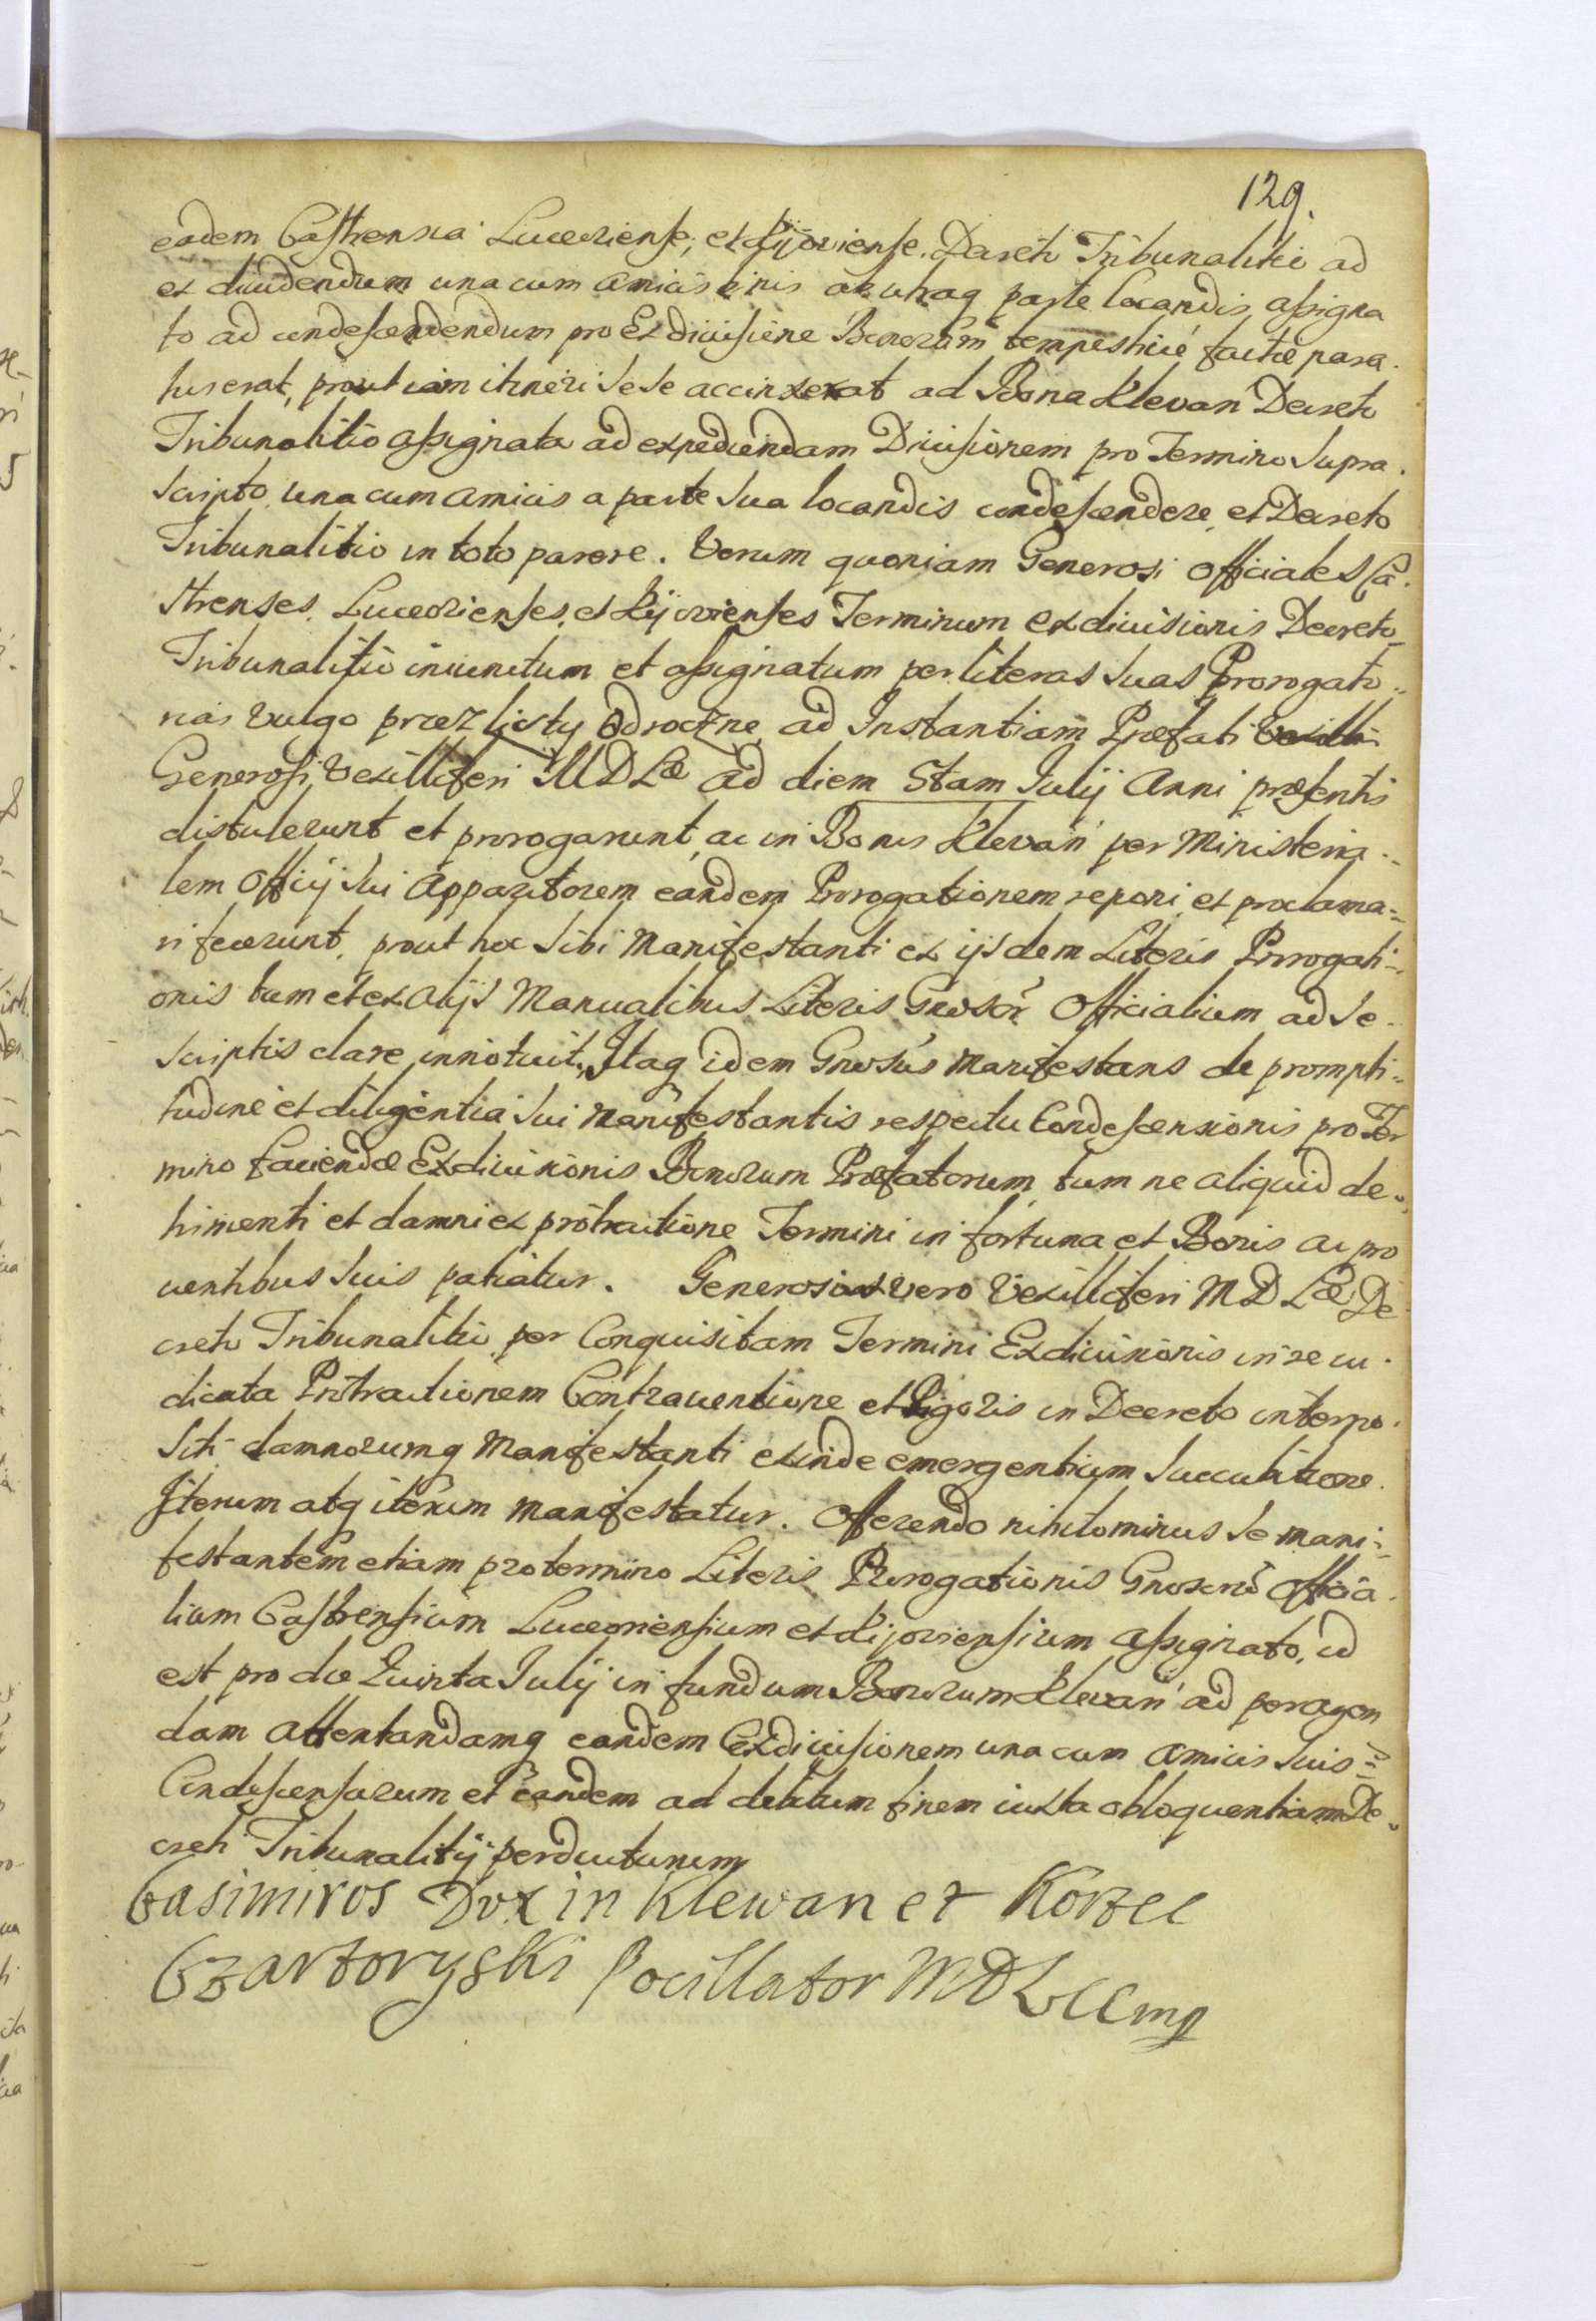 129.
eadem Castrensia Luceoriense, et Kijoviense. Decreti Tribunalitii ad
ex diuidendum una cum amicis binis ab utraq parte locandis, assigna
to ad condescendendum pro Exdiuisione Bonorum tempestiue factae para.
tus erat, prout iam itineri sese accinxerat ad Bona Klevan Decreto
Tribunalitio assignata ad expediendam Diuisionem pro Termino Supra.
scripto, una cum amicis a parte sua locandis condescendere, et Decreto
Tribunalitio in toto parere. Verum quoniam Generosi Officiales Ca.
strenses Luceorienses, et Kijovienses Terminum exdiuisionis Decreto
Tribunalitio iniunctum et assignatum per literas suas Prorogato..
rias vulgo przez listy Odroczne, ad Instantiam Praefati
Generosi Vexilliferi MDLae ad diem 5tam Julij Anni praesentis
distulerunt et prorogarunt, ac in Bonis Klevań per Ministeria..
lem Officij sui Apparitorem eandem Prorogationem reponi et proclama=
ri fecerunt, prout hoc sibi Manifestanti ex ijsdem Literis Prorogati=
onis tum et ex alijs Manualibus Literis Gnrosor Officialium ad se
scriptis clare innotuit, Itaq idem Gnrosus Manifestans de prompti=
tudine et diligentia sui Manifestantis respectu Condescensionis pro Ter
mino faciendae Exdiuisionis Bonorum Praefatorum, tum ne aliquid de.
trimenti et damni ex protractione Termini in fortuna et Bonis ac pro
uentibus suis patiatur. Generosi vero Vexilliferi MDLae De
creti Tribunalitii per Conquisitam Termini Exdiuisionis in re iu.
dicata Protractionem Contrauentione et Rigoris in Decreto interpo.
siti damnorumq Manifestanti exinde emergentium Succubitione.
Iterum atq iterum manifestatur. Offerendo nihilominus se mani=
festantem etiam pro termino Literis Prorogationis Gnrosorũ Officia.
lium Castrensium Luceoriensium et Kijoviensium assignato, id
est pro die Quinta Julij in fundum Bonorum Klevań ad peragen
dam attentandamq eandem Exdiuisionem una cum amicis suis =
Condescensurum et eandem ad debitum finem iuxta obloquentiam De.
creti Tribunalitij perducturum
Casimiros Dux in Klewan et Korzec
Czartoryski Pocillator MDL mp